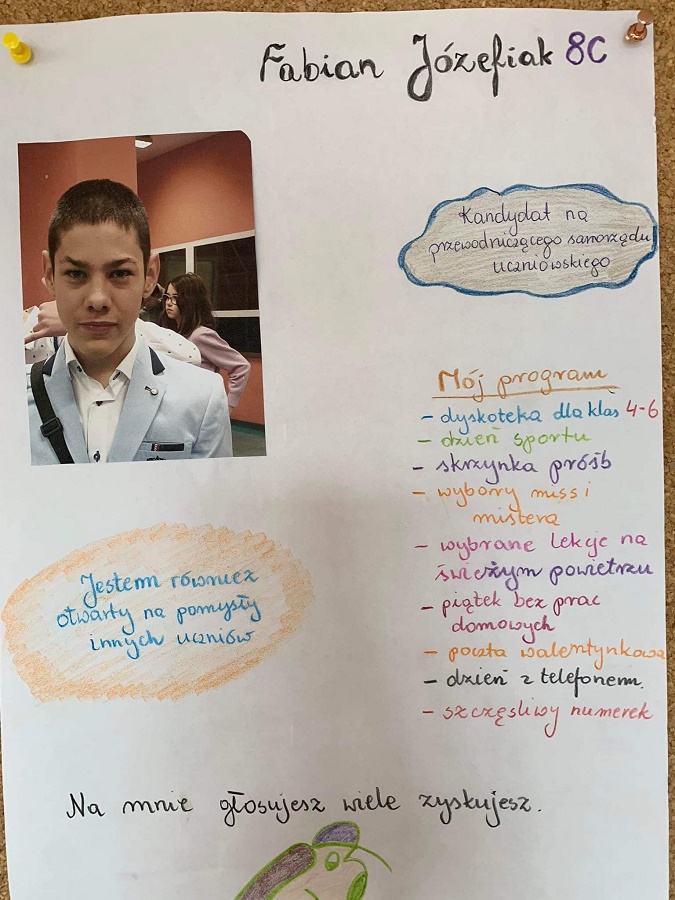 Fabian Józefiak 8C
Kandydat na
przewodniczącego samorządu
uczniowskiego
Mój program
- dyskoteka dla klas 4-6
- dzień sportu
- skrzynka próśb
- wybory miss i
mistera
- wybrane lekcje na
świeżym powietrzu
- piątek bez prac
domowych
- poczta walentynkowa
- dzień z telefonem.
- szczęśliwy numerek
Jestem również
otwarty na pomysły
innych uczniów
Na mnie głosujesz wiele zyskujesz.